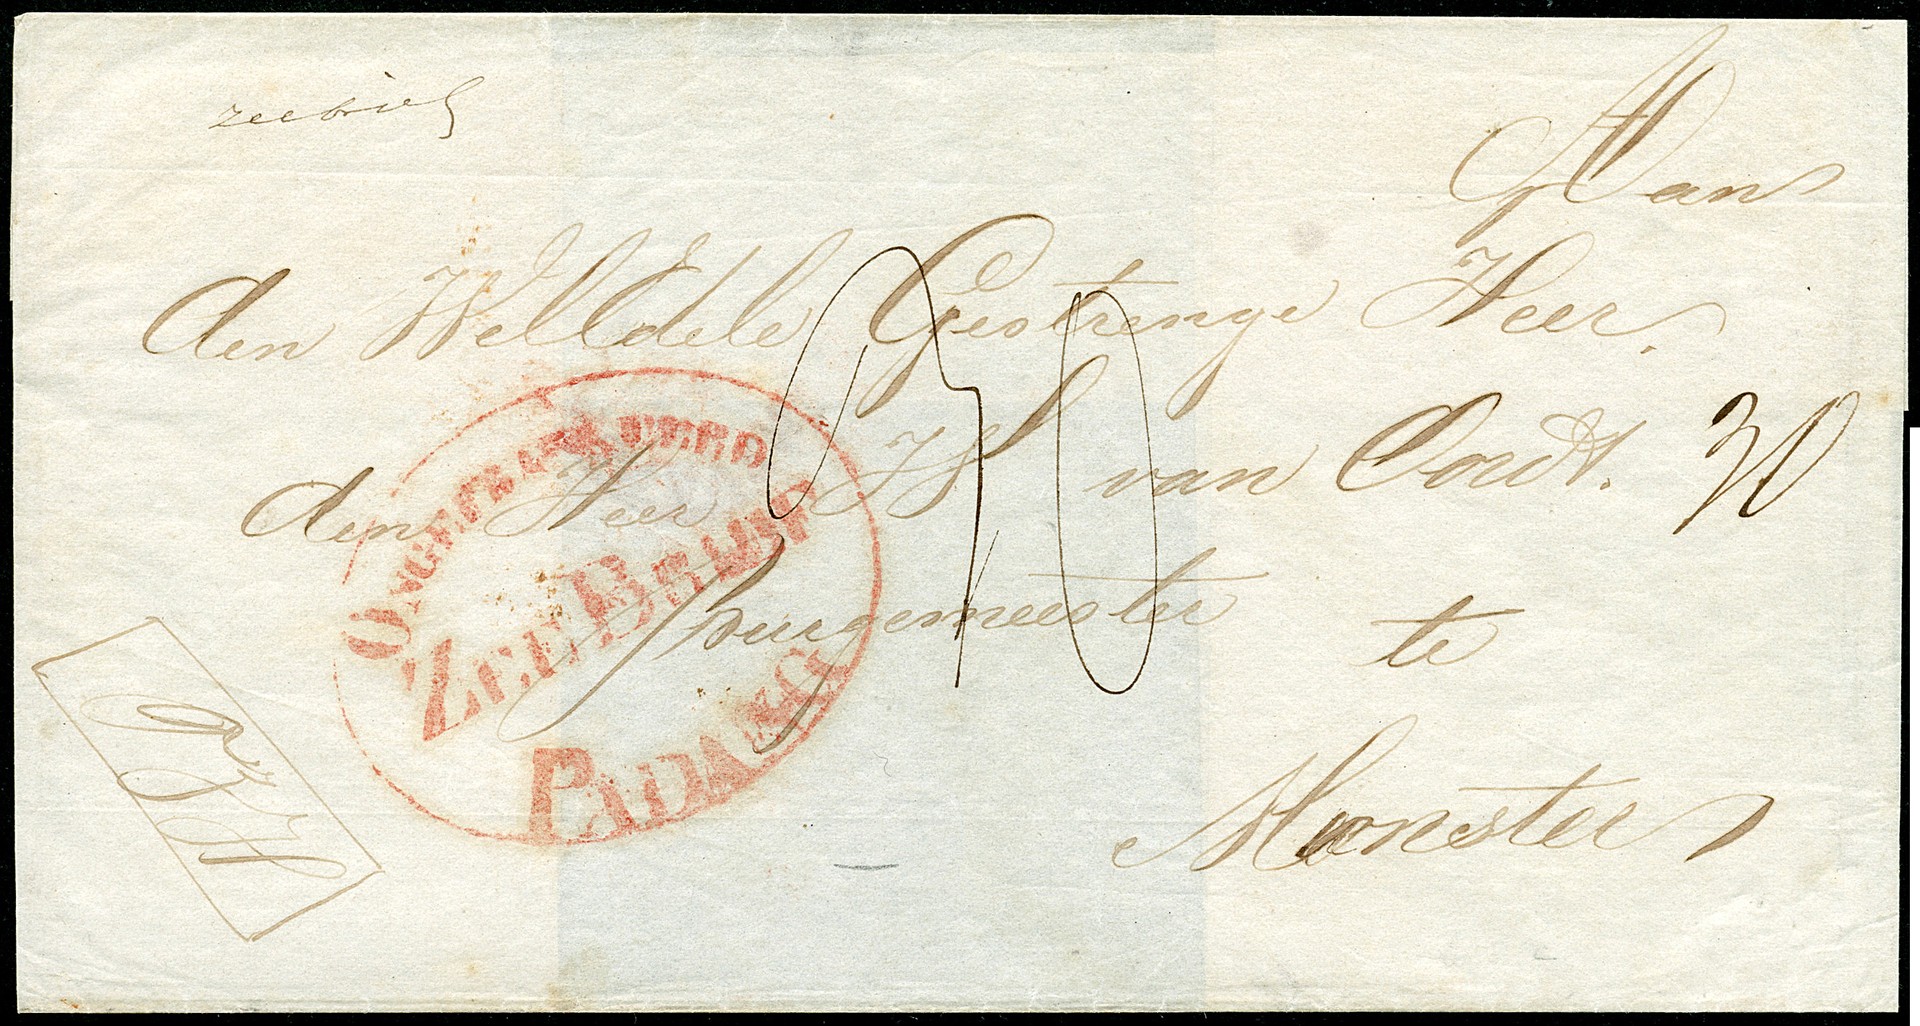 zeebrief
Aan
den WelEdele Gestrenge Heer.
den Heer van Oordt.
30
Burgemeester te
Monster
ONGEFRANKEERD
ZEEBRIEF
PADANG